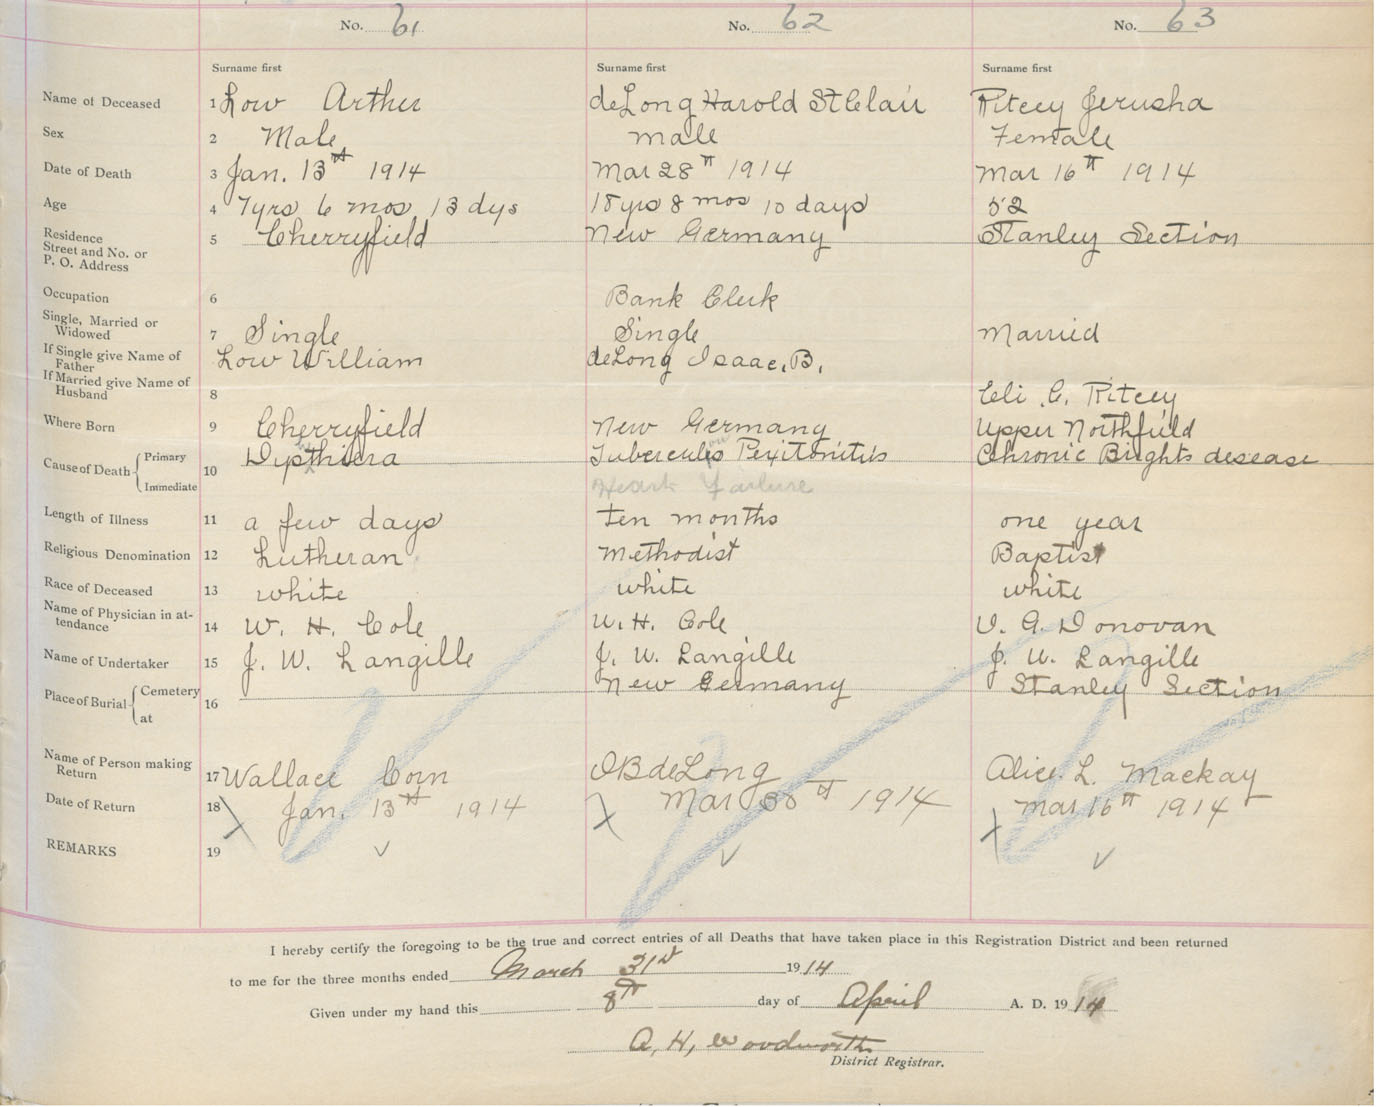 No. 61 No. 62 No. 63
Surname first Surname first Surname first
Name of Deceased 1 Low Arther deLong Harold StClair Ritcey Jerusha
Sex 2 Male male Female
Date of Death 3 Jan. 13th 1914 Mar 28th 1914 Mar 16th 1914
Age 4 7yrs 6 mos 13 dys 18 yrs 8 mos 10 days 52
Residence
Street and No. or 5 Cherryfield New Germany Stanley Section
P. O. Address
Occupation 6 Bank Clerk
Single, Married or
Widowed 7 Single Single Married
If Single give Name of
Father Low William deLong Isaac. B.
If Married give Name of
Husband 8 Eli C. Ritcey
Where Born 9 Cherryfield New Germany Upper Northfield
Cause of Death Primary 10 Tubercul Peritonitis Chronic Brights desease
Immediate Heart Failure
Length of Illness 11 a few days ten months one year
Religious Denomination 12 Lutheran Methodist Baptist
Race of Deceased 13 white white white
Name of Physician in at-
tendance 14 W. H. Cole W. H. Cole Donovan
Name of Undertaker 15 J. W. Langille J. W. Langille J. W. Langille
Place of Burial Cemetery 16 New Germany Stanley Section
at
Name of Person making
Return 17 Wallace Corn IBdeLong Alice. L. Mackay
Date of Return 18 Jan. 13th 1914 Mar 30th 1914 Mar 16th 1914
REMARKS 19
I hereby certify the foregoing to be the true and correct entries of all Deaths that have taken place in this Registration District and been returned
to me for the three months ended March 31st 1914
Given under my hand this 8th day of April A. D. 1914
A, H, Woodworth
District Registrar.